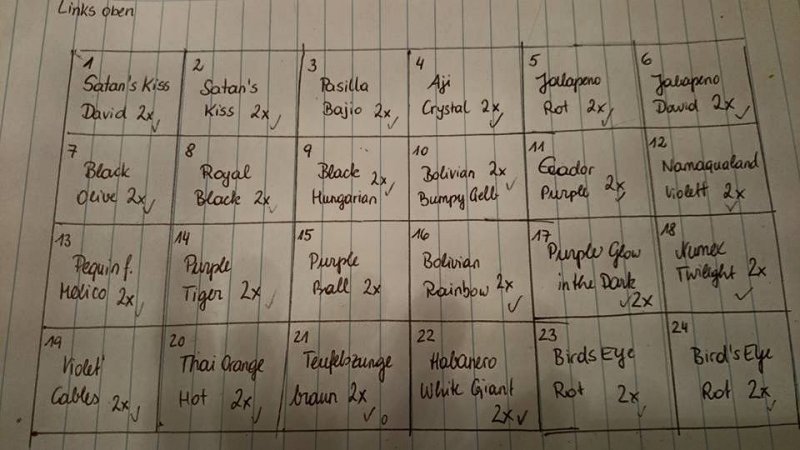 Links oben
1
Satan's Kiss
David 2x ✓
2
Satan's
Kiss 2x ✓
3
Pasilla
Bajio 2x ✓
4
Aji
Crystal 2x ✓
5
Jalapeno
Rot 2x ✓
6
Jalapeno
David 2x ✓
7
Black
Olive 2x ✓
8
Royal
Black 2x ✓
9
Black 2x ✓
Hungarian
10
Bolivian 2x ✓
Bumpy Gelb
11
Ecador
Purple 2x ✓
12
Namaqualand
Violett 2x ✓
13
Pequin f.
Mexico 2x ✓
14
Purple
Tiger 2x ✓
15
Purple
Ball 2x
16
Bolivian
Rainbow 2x ✓
17
Purple Glow
in the Dark
✓ 2x
18
Numex
Twilight 2x ✓
19
Violet
Cables 2x ✓
20
Thai Orange
Hot 2x ✓
21
Teufelszunge
braun 2x ✓
22
Habanero
White Giant
2x ✓
23
Birds Eye
Rot 2x ✓
24
Bird's Eye
Rot 2x ✓